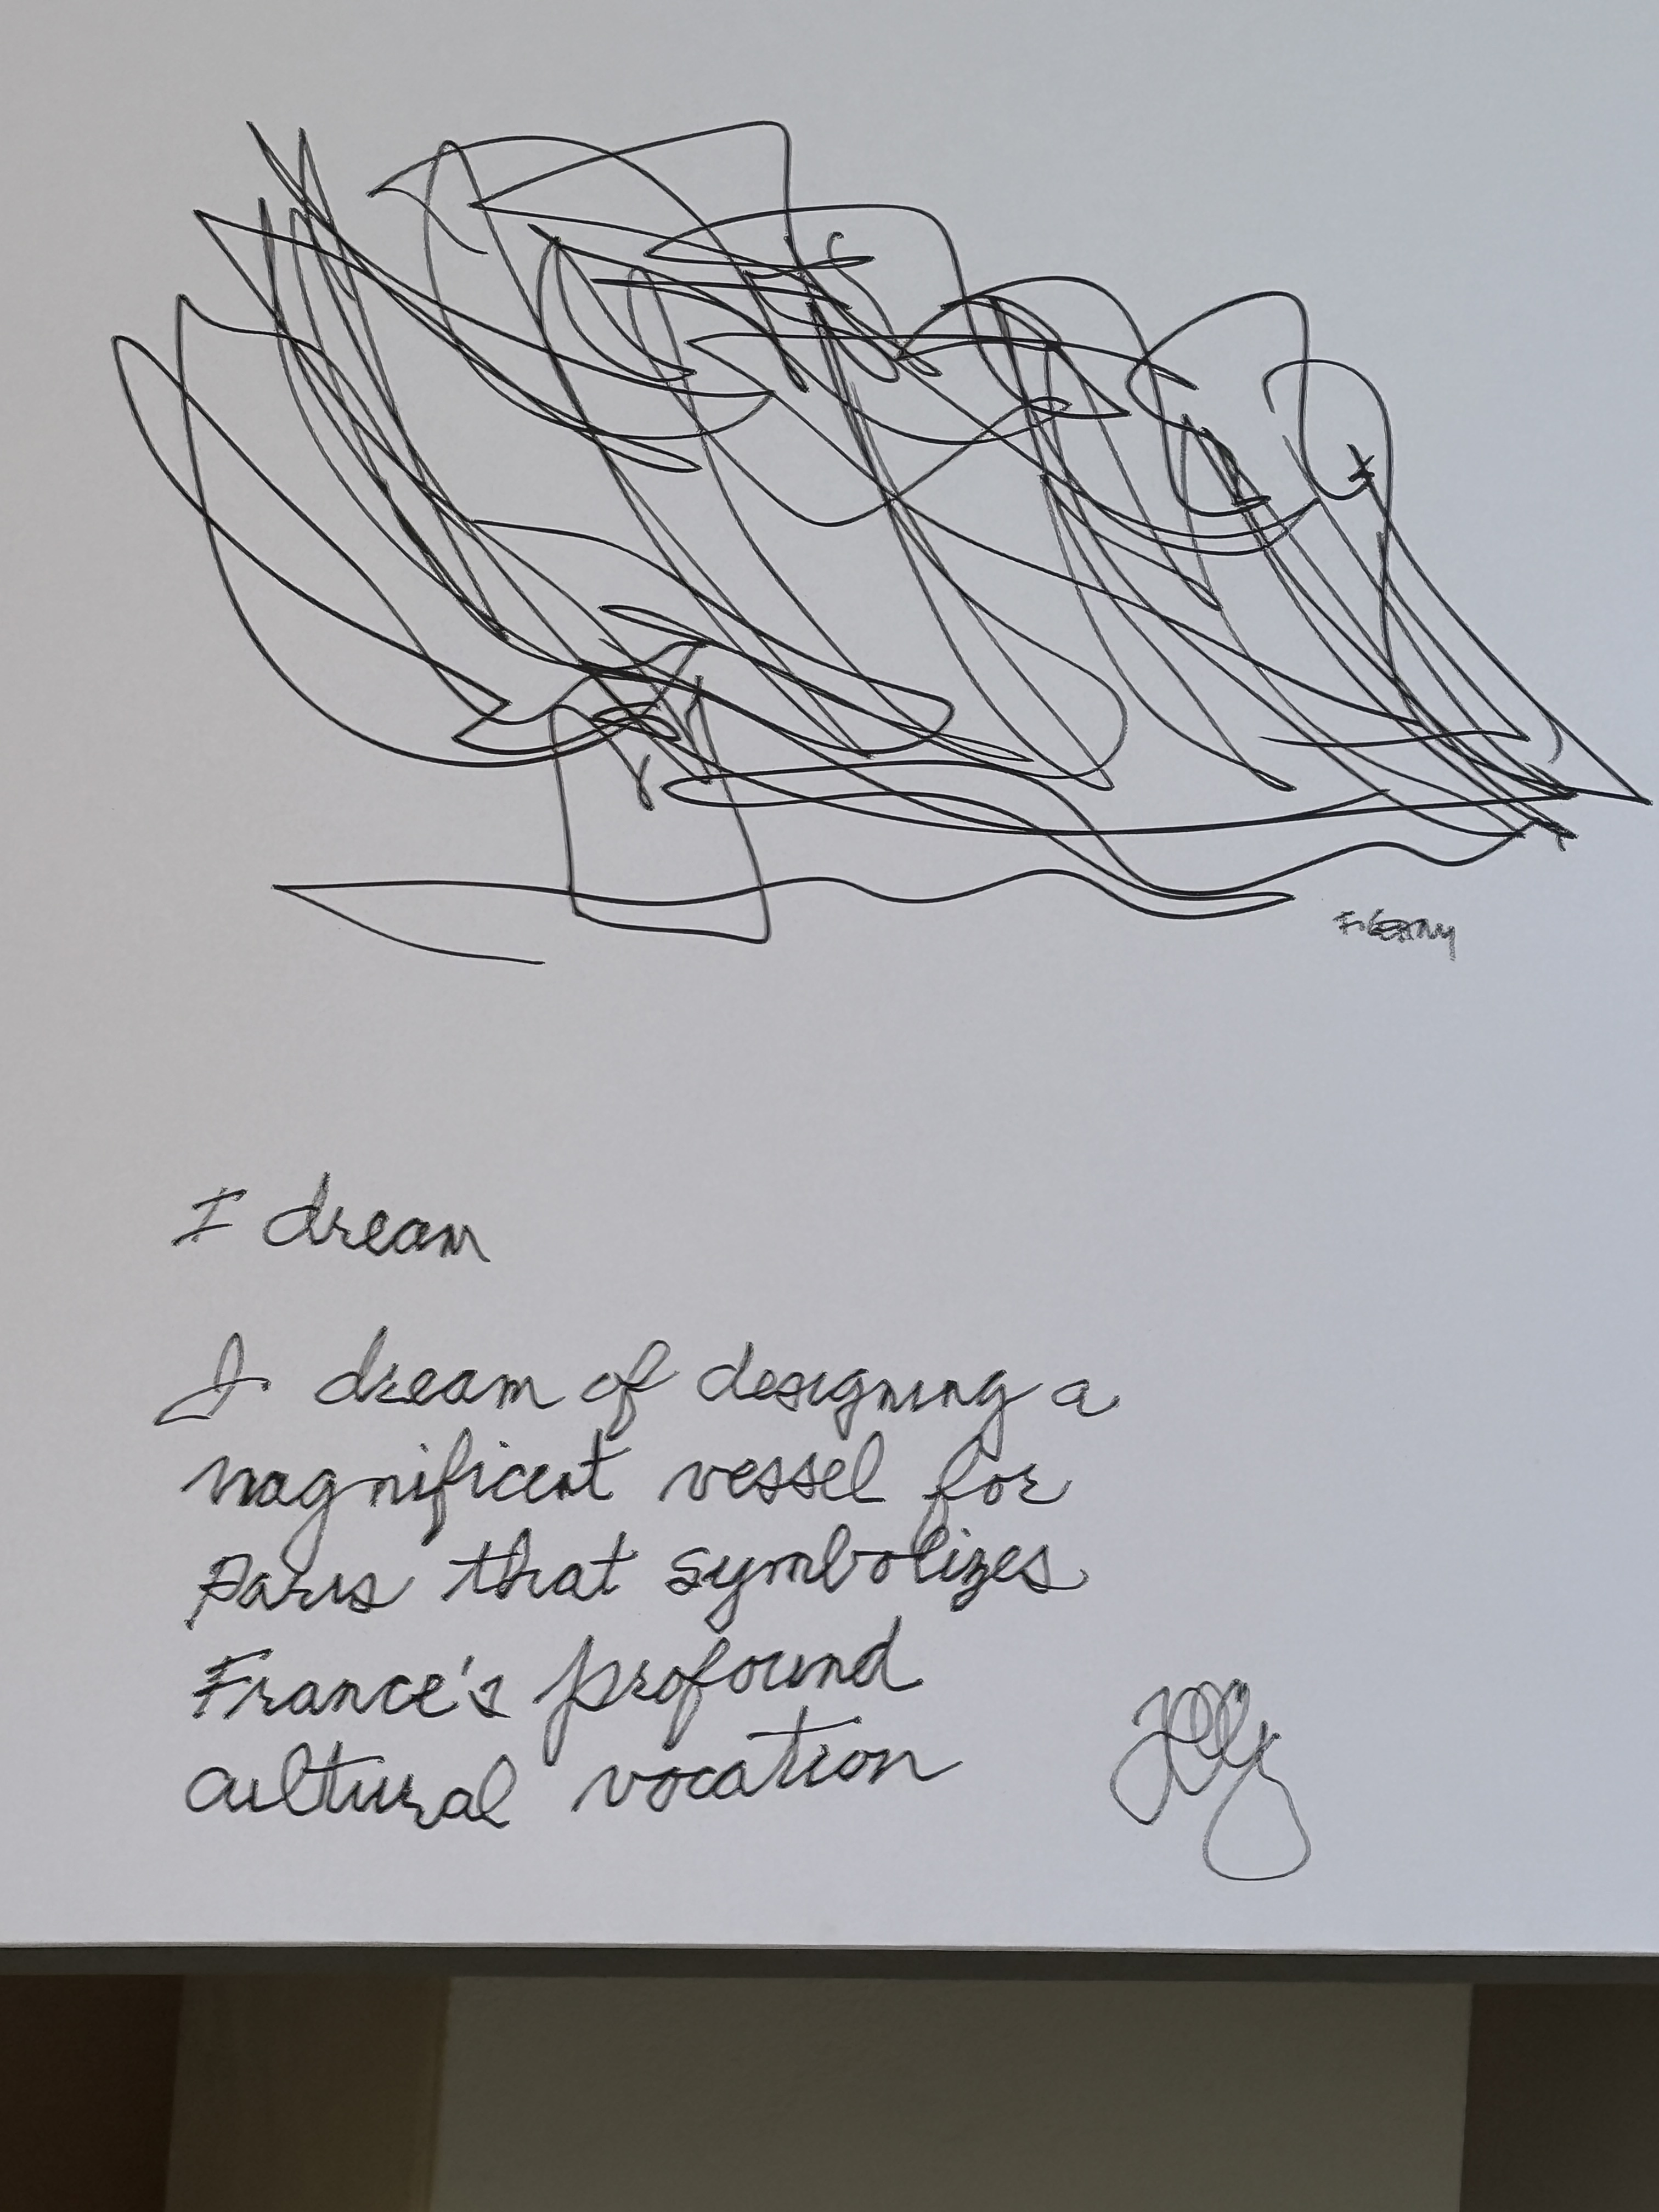 F. Gehry
I dream
I dream of designing a
magnificent vessel for
Paris that symbolizes
France's profound
cultural vocation